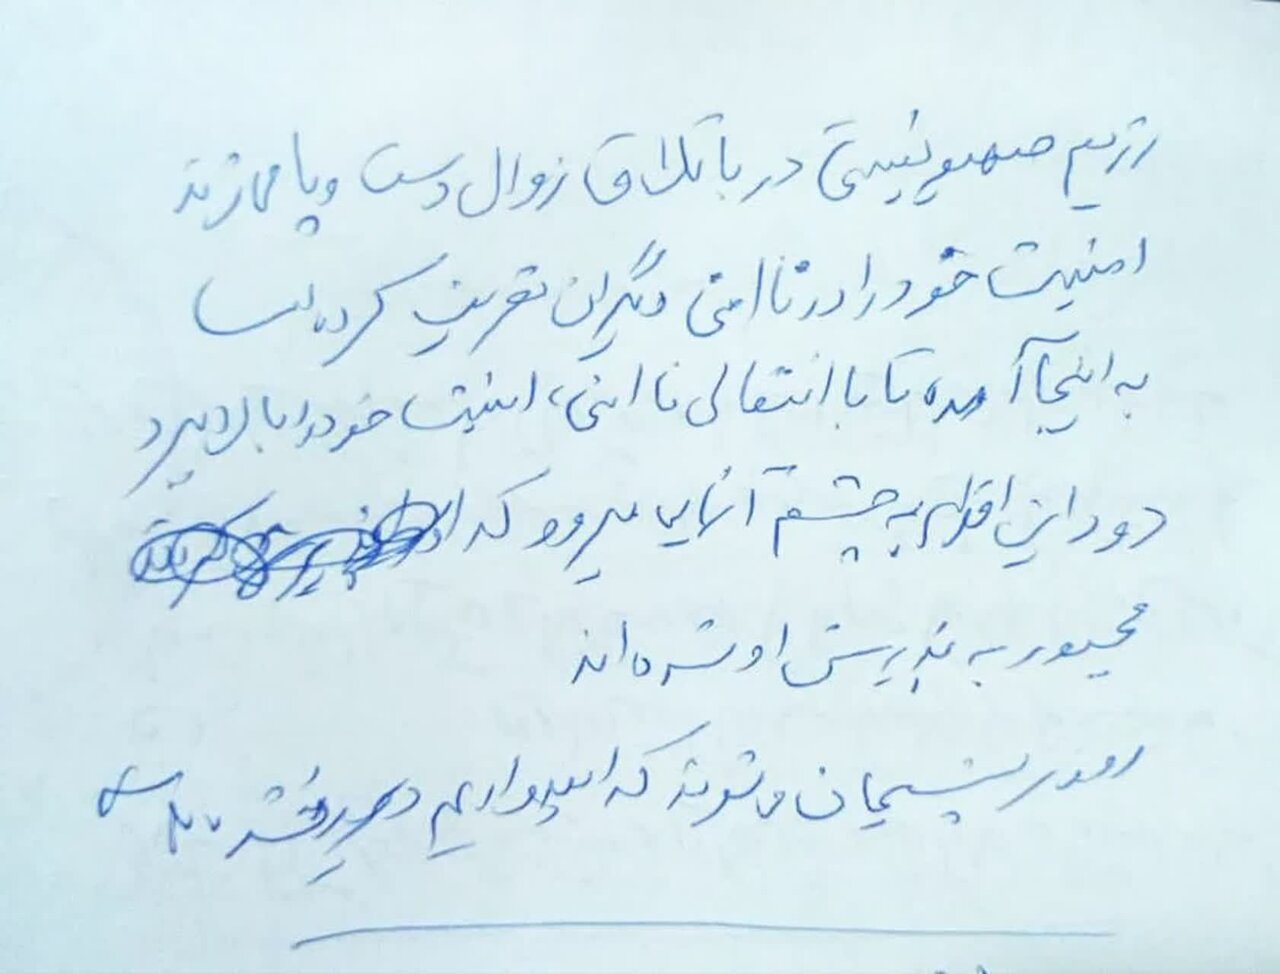 رژیم صهیونیستی در باتلاق زوال دست و پا میزند
امنیت خود را در ناامنی دیگران تعریف کرده است
به اینجا آمده تا با انتقالی ناامنی، امنیت خود را بالا ببرد
دود این اقدام به چشم آنهایی میرود که
مجبور به پذیرش او شده اند
پشیمان می شوند که امیدواریم دیر نشده باشد